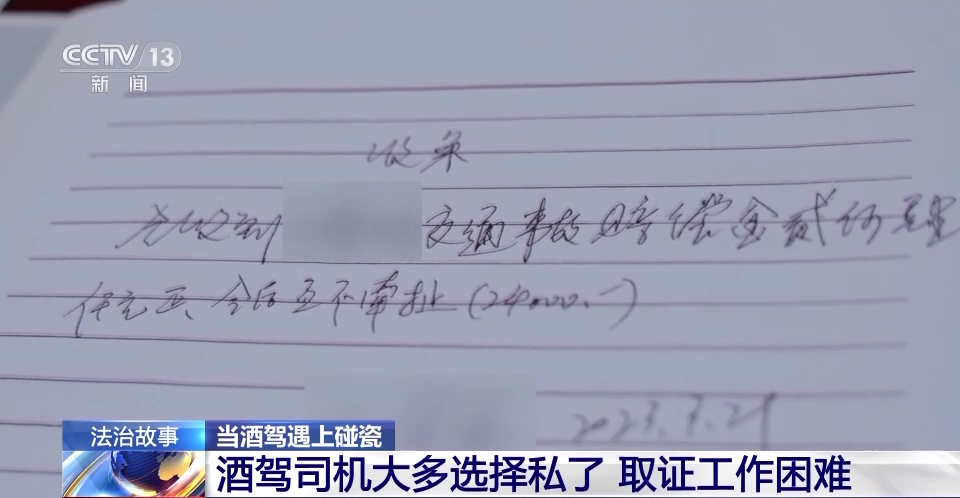 CCTV 13
新闻
收条
收到 交通事故赔偿金贰万肆
仟元正、今后互不牵扯(24000.-)
法治故事 当酒驾遇上碰瓷
酒驾司机大多选择私了 取证工作困难